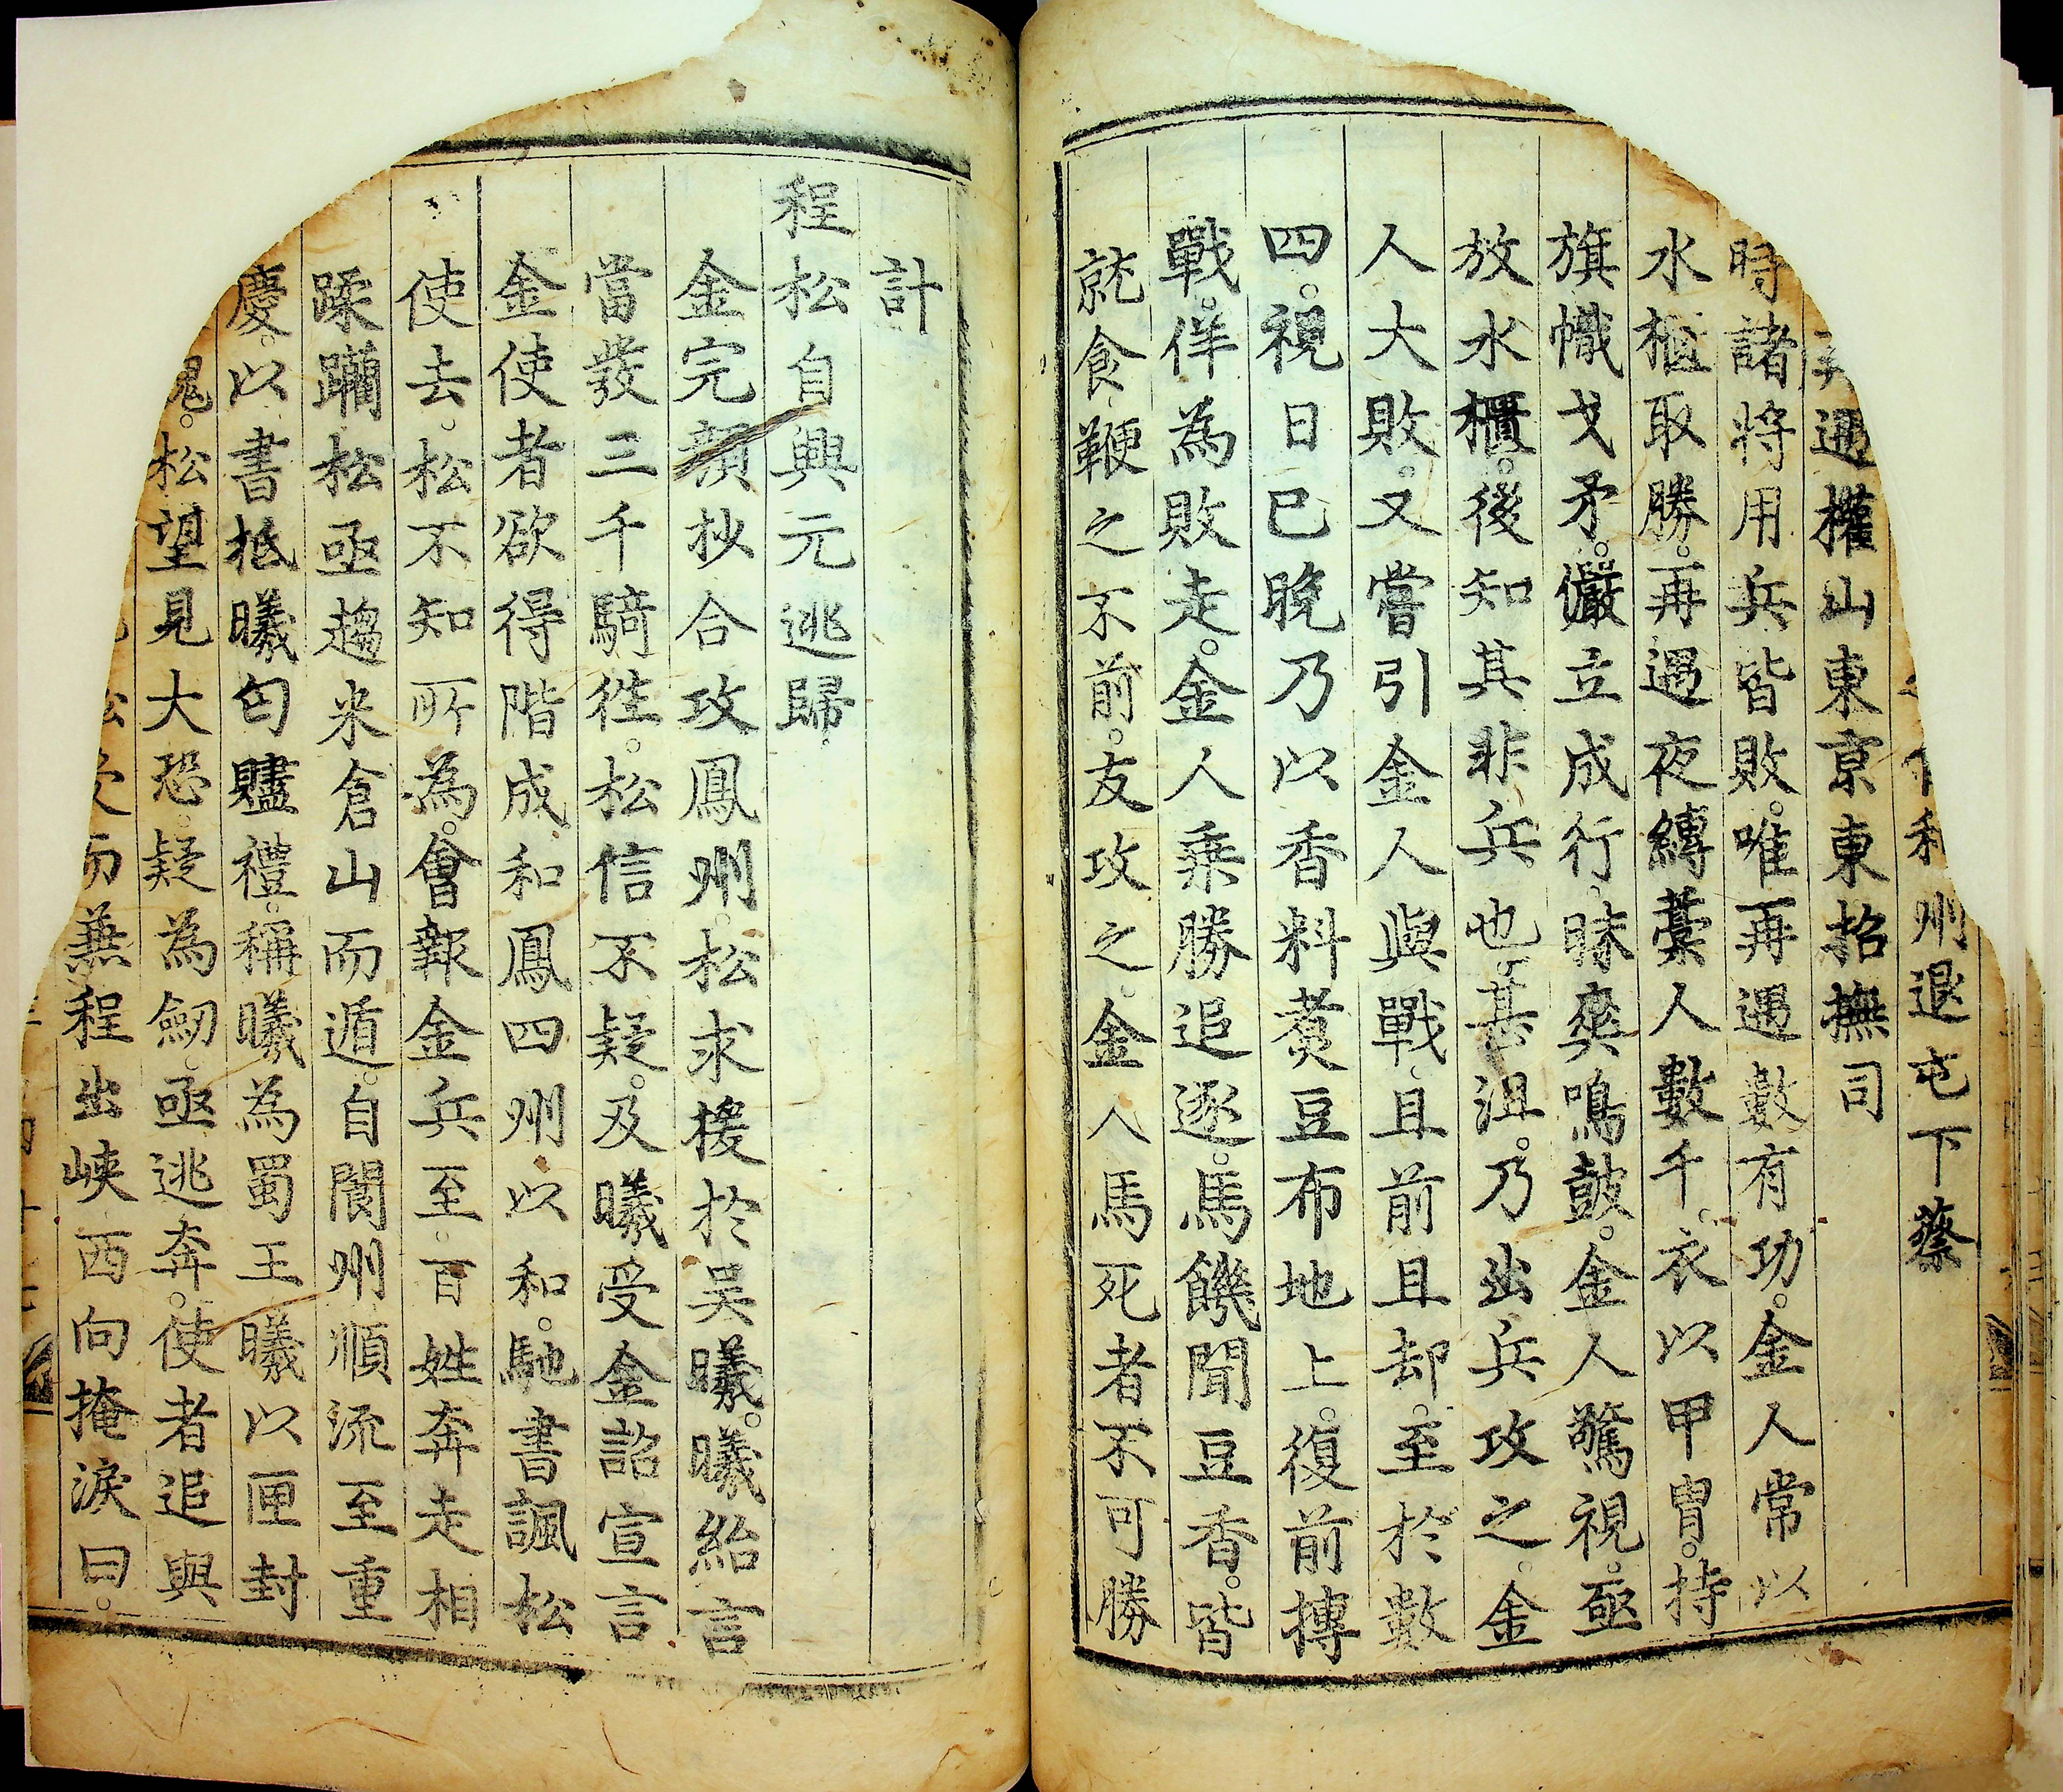 利州退屯下蔡
遇權山東京東招撫司
時諸將用兵皆敗。唯再遇數有功。金人常以
水櫃取勝。再遇夜縛藁人數千。衣以甲冑。持
旗幟戈矛。儼立成行。昧爽鳴鼓。金人驚視。亟
放水櫃。後知其非兵也。甚沮。乃出兵攻之。金
人大敗。又嘗引金人與戰。且前且却。至於數
四。視日已晚。乃以香料煑豆布地上。復前搏
戰。佯為敗走。金人乘勝追逐。馬饑聞豆香。皆
就食鞭之不前。友攻之。金人馬死者不可勝
計
程松自興元逃歸
金完顏抄合攻鳳州。松求援於吳曦。曦紿言
當發三千騎徃。松信不疑。及曦受金詔宣言
金使者欲得階成和鳳四州以和。馳書諷松
使去。松不知所為。會報金兵至。百姓奔走相
蹂躪松亟趨米倉山而遁。自閬州順流至重
慶。以書抵曦匄贐禮。稱曦為蜀王曦以匣封
松望見大恐。疑為劒。亟逃奔。使者追與
而兼程出峽西向掩淚曰。